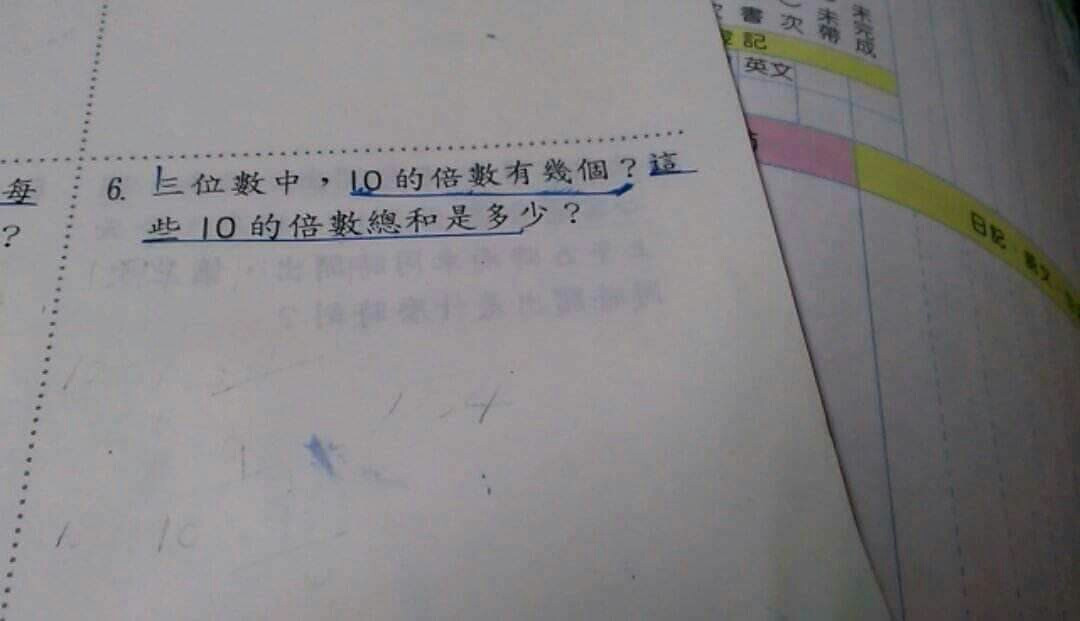 6. 三位數中，10 的倍數有幾個？這
些 10 的倍數總和是多少？
每
？
未完成
未帶
次
書
記
英文
日記